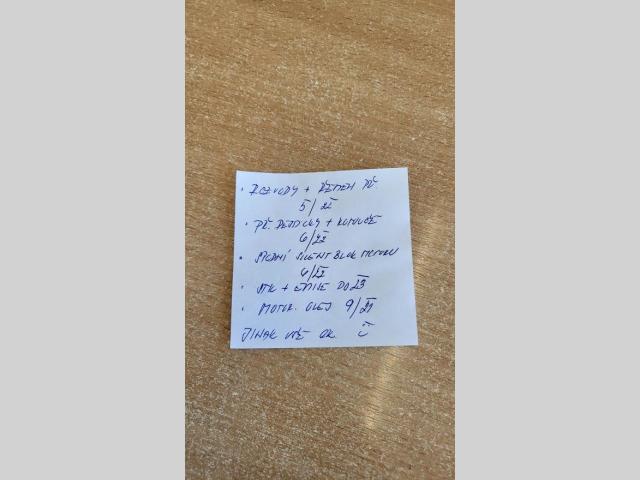 • ROZVODY + ŘEMEN
5/22
• PŘ. DESTIČKY + KOTOUČE
6/22
• SPODNÍ SILENTBLOK MOTORU
6/22
• STK + EMISE DO 23
• MOTOR. OLEJ 9/21
JINAK VŠE OK.